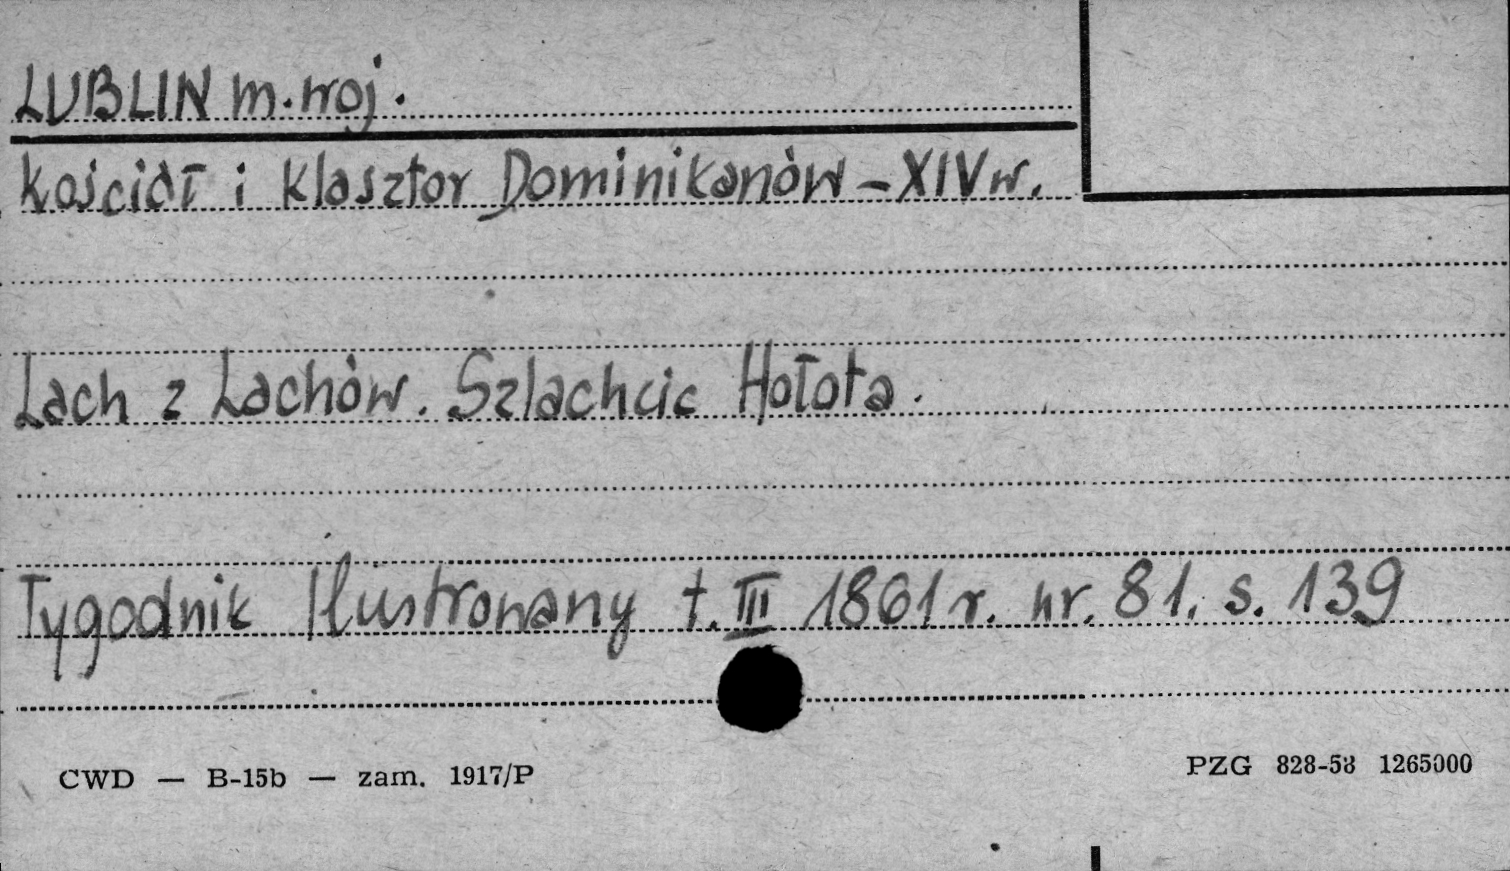 LUBLIN m. woj.
Kościół i klasztor Dominikanów – XIV w.
Lach z Lachów. Szlachcic Hołota.
Tygodnik Ilustrowany t. III 1861 r. nr. 81. s. 139
CWD — B-15b — zam. 1917/P
PZG 828-58 1265000